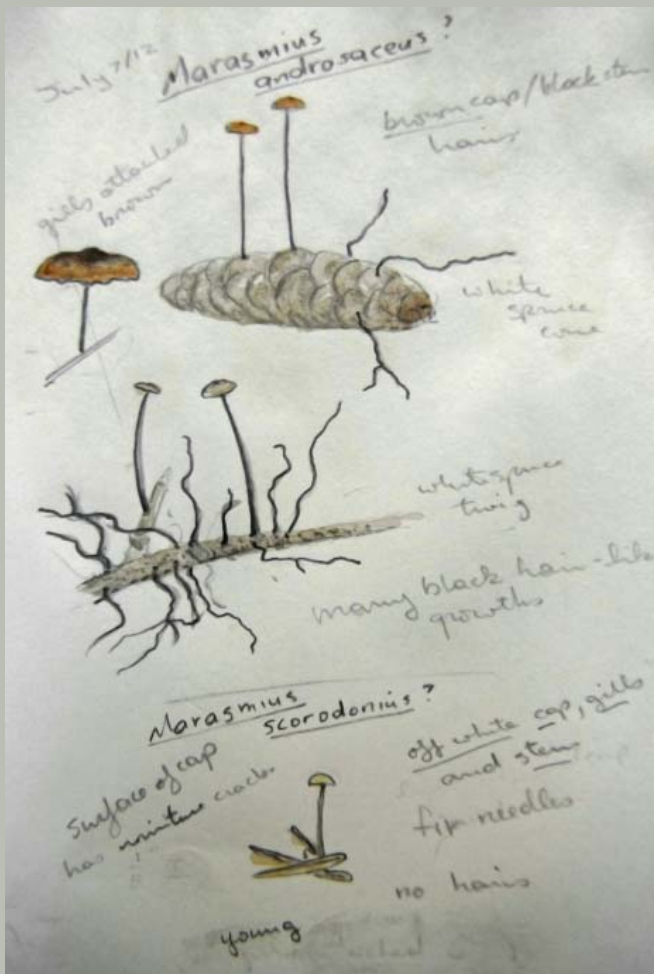 July 7/12
Marasmius
androsaceus?
brown cap/black stem
hairs
gills attached
brown
white
spruce
cone
white spruce
twig
many black hair-like
growths
Marasmius
scorodonius?
surface of cap
has minture cracks
off white cap, gills
and stem
fir needles
no hairs
young